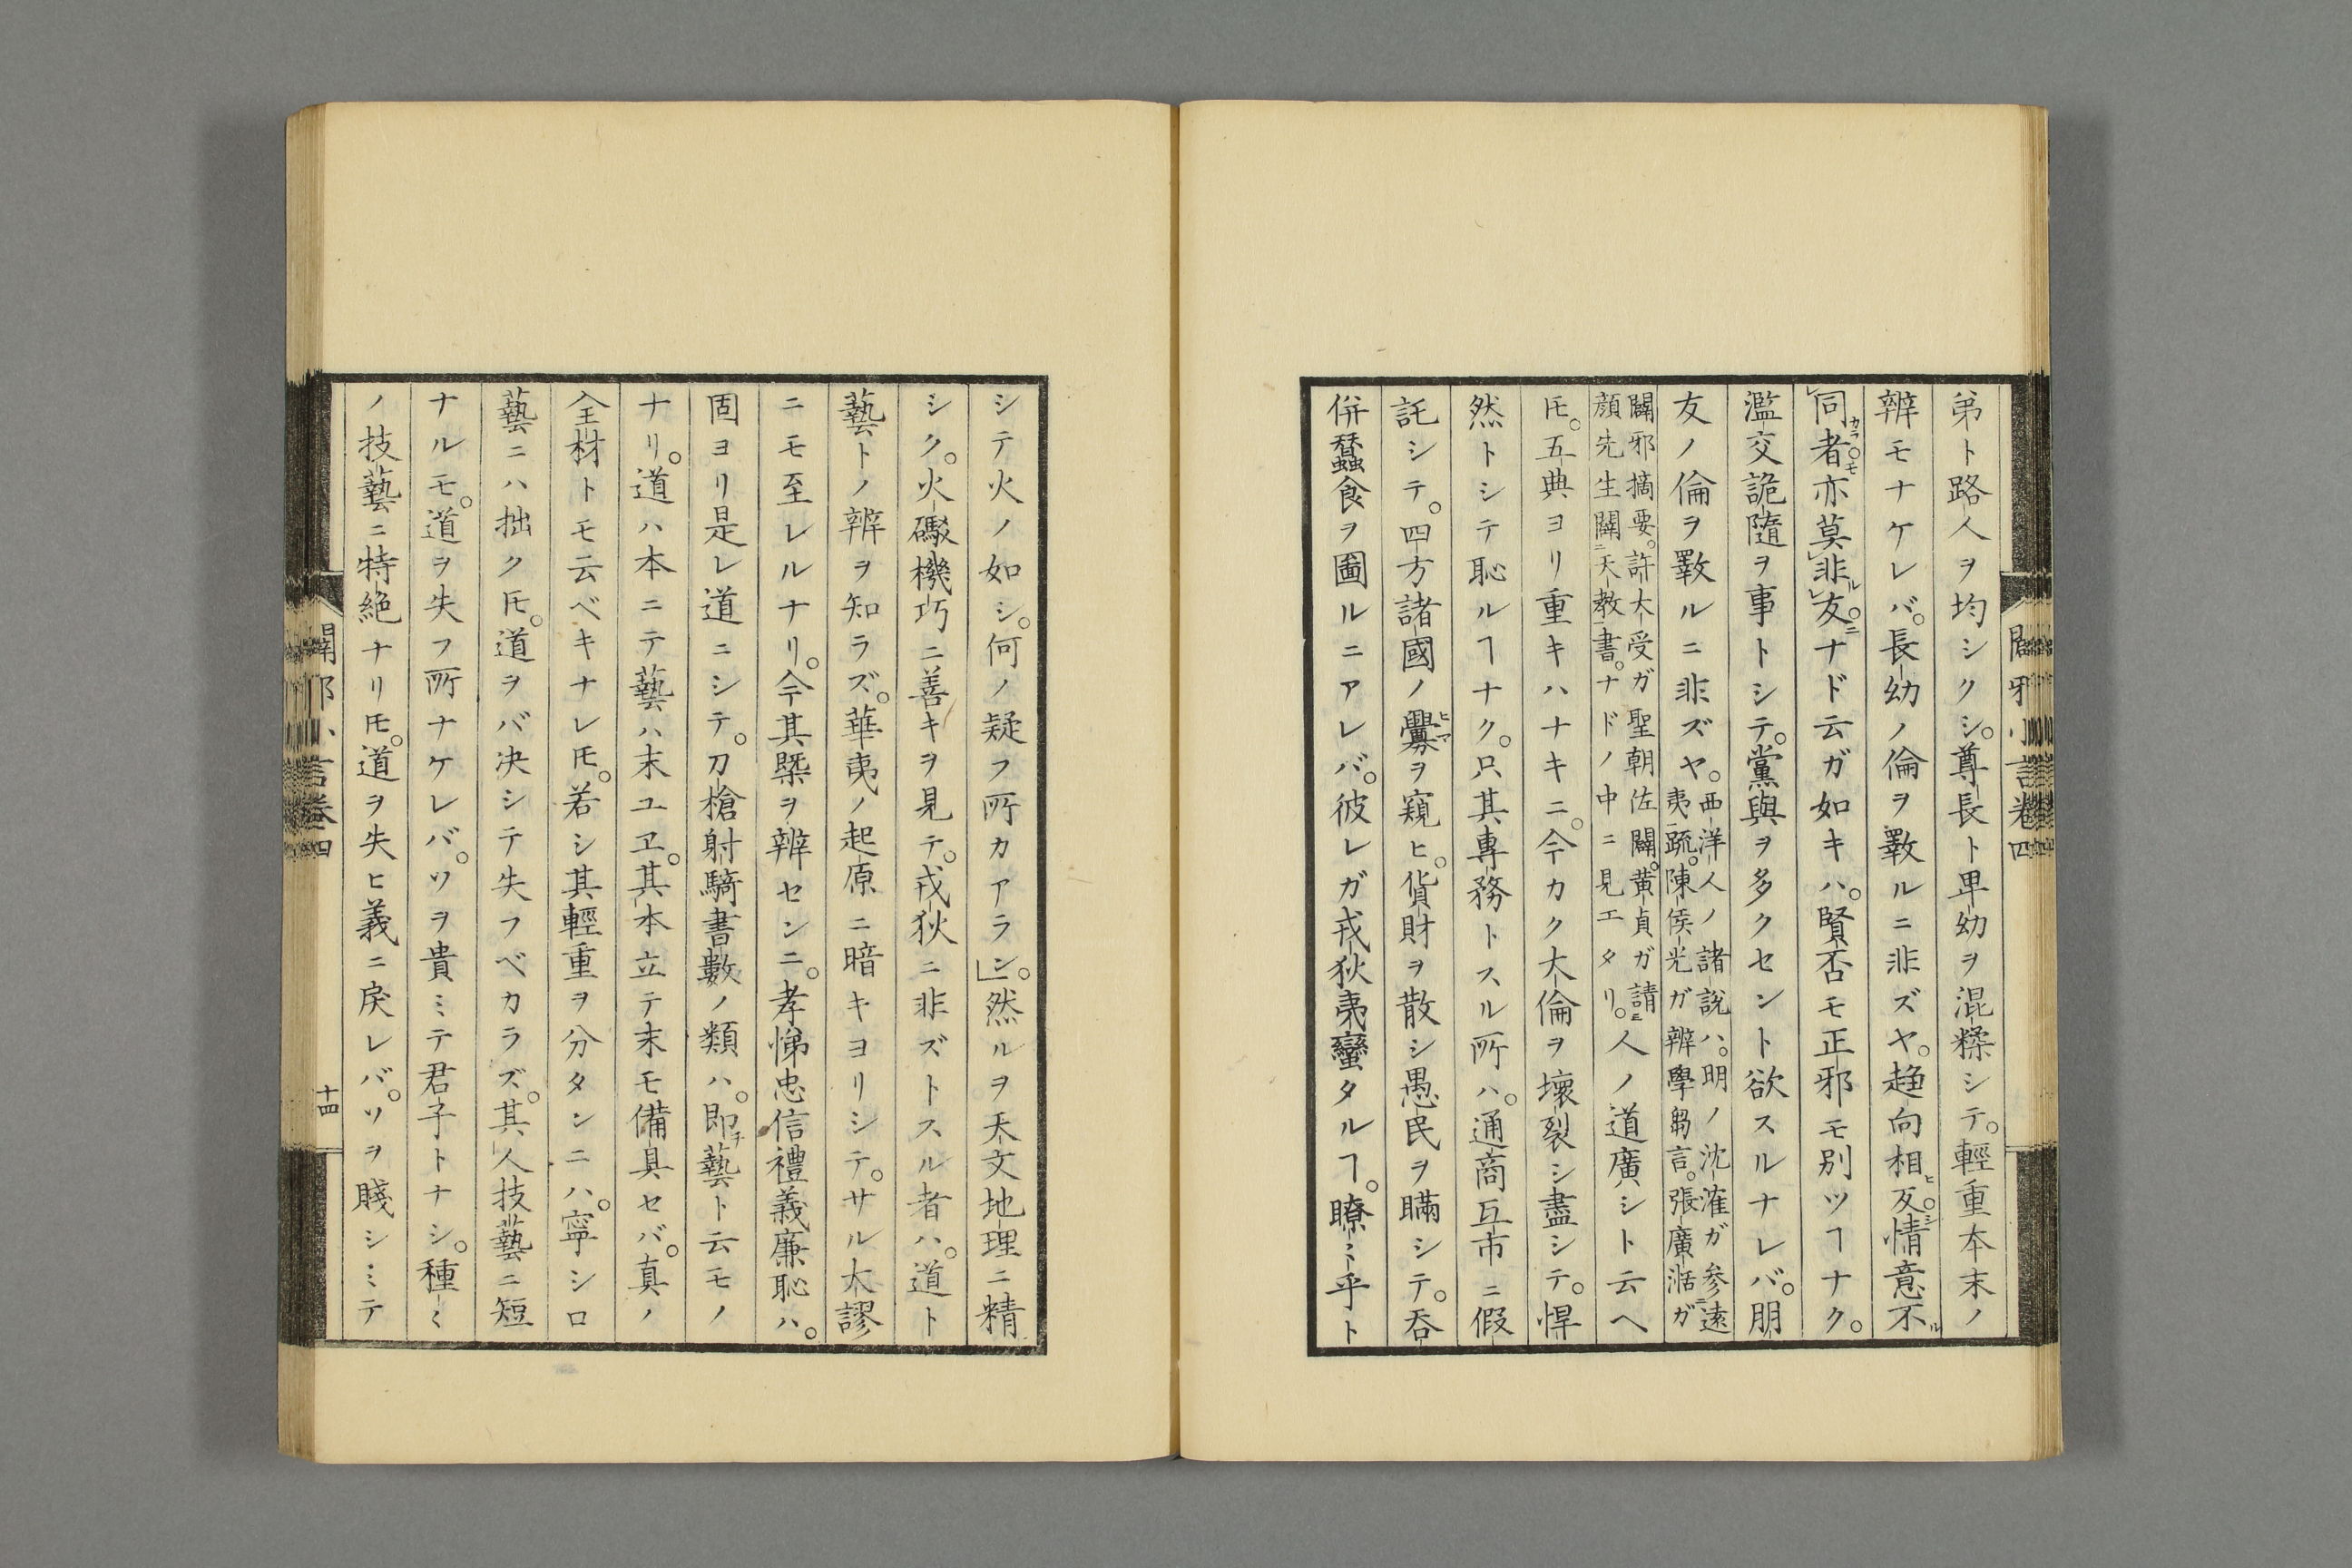 弟ト路人ヲ均シクシ。尊長ト卑幼ヲ混糅シテ。輕重本末ノ
辨モナケレバ。長幼ノ倫ヲ斁ルニ非ズヤ。趋向相反ヒシ。情意不ル
同カラ者モ。亦莫非ル友ニ。ナド云ガ如キハ。賢否モ正邪モ別ツヿナク。
濫交詭隨ヲ事トシテ。黨與ヲ多クセント欲スルナレバ。朋
友ノ倫ヲ斁ルニ非ズヤ。西洋人ノ諸說ハ。明ノ沈㴶ガ参遠
夷疏。陳侯光ガ辨學芻言。張廣湉ガ
闢邪摘要。許大受ガ聖朝佐闢。黄貞ガ請
顔先生闢天教書。ナドノ中ニ見エタリ。人ノ道廣シト云ヘ
𪜈。五典ヨリ重キハナキニ。今カク大倫ヲ壞裂シ盡シテ。悍
然トシテ恥ルヿナク。只其專務トスル所ハ。通商互市ニ假
託シテ。四方諸國ノ釁ヒマヲ窺ヒ。貨財ヲ散シ愚民ヲ瞞シテ。呑
併蠶食ヲ圖ルニアレバ。彼レガ戎狄夷蠻タルヿ。瞭々乎ト
闢邪小言卷四
シテ火ノ如シ。何ノ疑フ所カアラン。」然ルヲ天文地理ニ精
シク。火礮機巧ニ善キヲ見テ。戎狄ニ非ズトスル者ハ。道ト
藝トノ辨ヲ知ラズ。華夷ノ起原ニ暗キヨリシテ。サル大謬
ニモ至レルナリ。今其槩ヲ辨センニ。孝悌忠信禮義廉恥ハ。
固ヨリ是レ道ニシテ。刀槍射騎書數ノ類ハ。即チ藝ト云モノ
ナリ。道ハ本ニテ藝ハ末ユヱ。其本立テ末モ備具セバ。真ノ
全材トモ云ベキナレ𪜈。若シ其輕重ヲ分タンニハ。寧シロ
藝ニハ拙ク𪜈。道ヲバ决シテ失フベカラズ。其人技藝ニ短
ナルモ。道ヲ失フ所ナケレバ。ソヲ貴ミテ君子トナシ。種〻
ノ技藝ニ特絶ナリ𪜈。道ヲ失ヒ義ニ戻レバ。ソヲ賤シミテ
闢邪小言卷四
十四